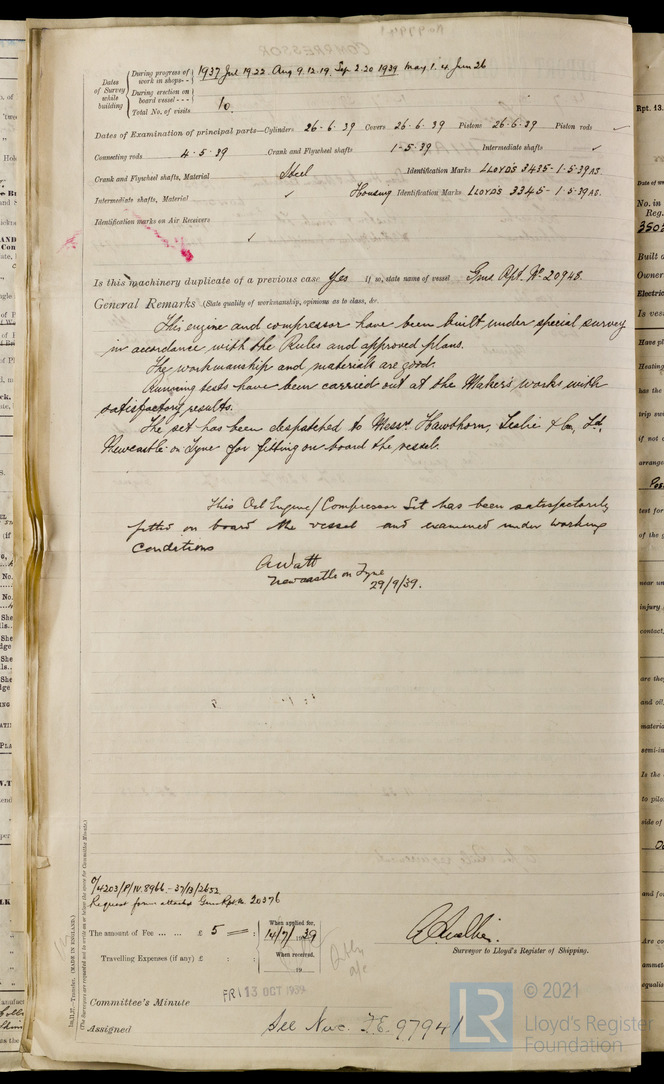 COMPRESSOR
Dates of Survey while building
During progress of work in shops - - 1937 Jul 19 22 Aug 9.12.19 Sep 2.20 1939 May 1. 4 Jun 26
During erection on board vessel - - -
Total No. of visits 10.
Dates of Examination of principal parts—Cylinders 26·6·39 Covers 26·6·39 Pistons 26·6·39 Piston rods ✓
Connecting rods 4·5·39 Crank and Flywheel shafts 1·5·39 Intermediate shafts ✓
Crank and Flywheel shafts, Material Steel Identification Marks LLOYD'S 3435-1·5·39
Intermediate shafts, Material ✓ Housing Identification Marks LLOYD'S 3345-1·5·39
Identification marks on Air Receivers
✓
Is this machinery duplicate of a previous case Yes If so, state name of vessel Gms Rpt. No 20948.
General Remarks (State quality of workmanship, opinions as to class, &c.
This engine and compressor have been built under special survey
in accordance with the Rules and approved plans.
The workmanship and materials are good.
Running tests have been carried out at the Maker's works with
satisfactory results.
The set has been despatched to Messrs Hawthorn, Leslie & Co, Ltd,
Newcastle-on-Tyne for fitting on board the vessel.
This Oil Engine/Compressor Set has been satisfactorily
fitted on board the vessel and examined under working
conditions
A Watt
Newcastle on Tyne
29/9/39.
Request form attached Gms Rpt. No. 20376
The amount of Fee ... ... £ 5 : :
When applied for, 14/7/1939
Travelling Expenses (if any) £ : :
When received, 19
Surveyor to Lloyd's Register of Shipping.
FRI 13 OCT 1939
Committee's Minute
Assigned See Nwc. F.E. 97941
(MADE IN ENGLAND.)
(The Surveyors are requested not to write on or below the space for Committee Minute.)
Rpt. 13.
LR © 2021
Lloyd's Register
Foundation